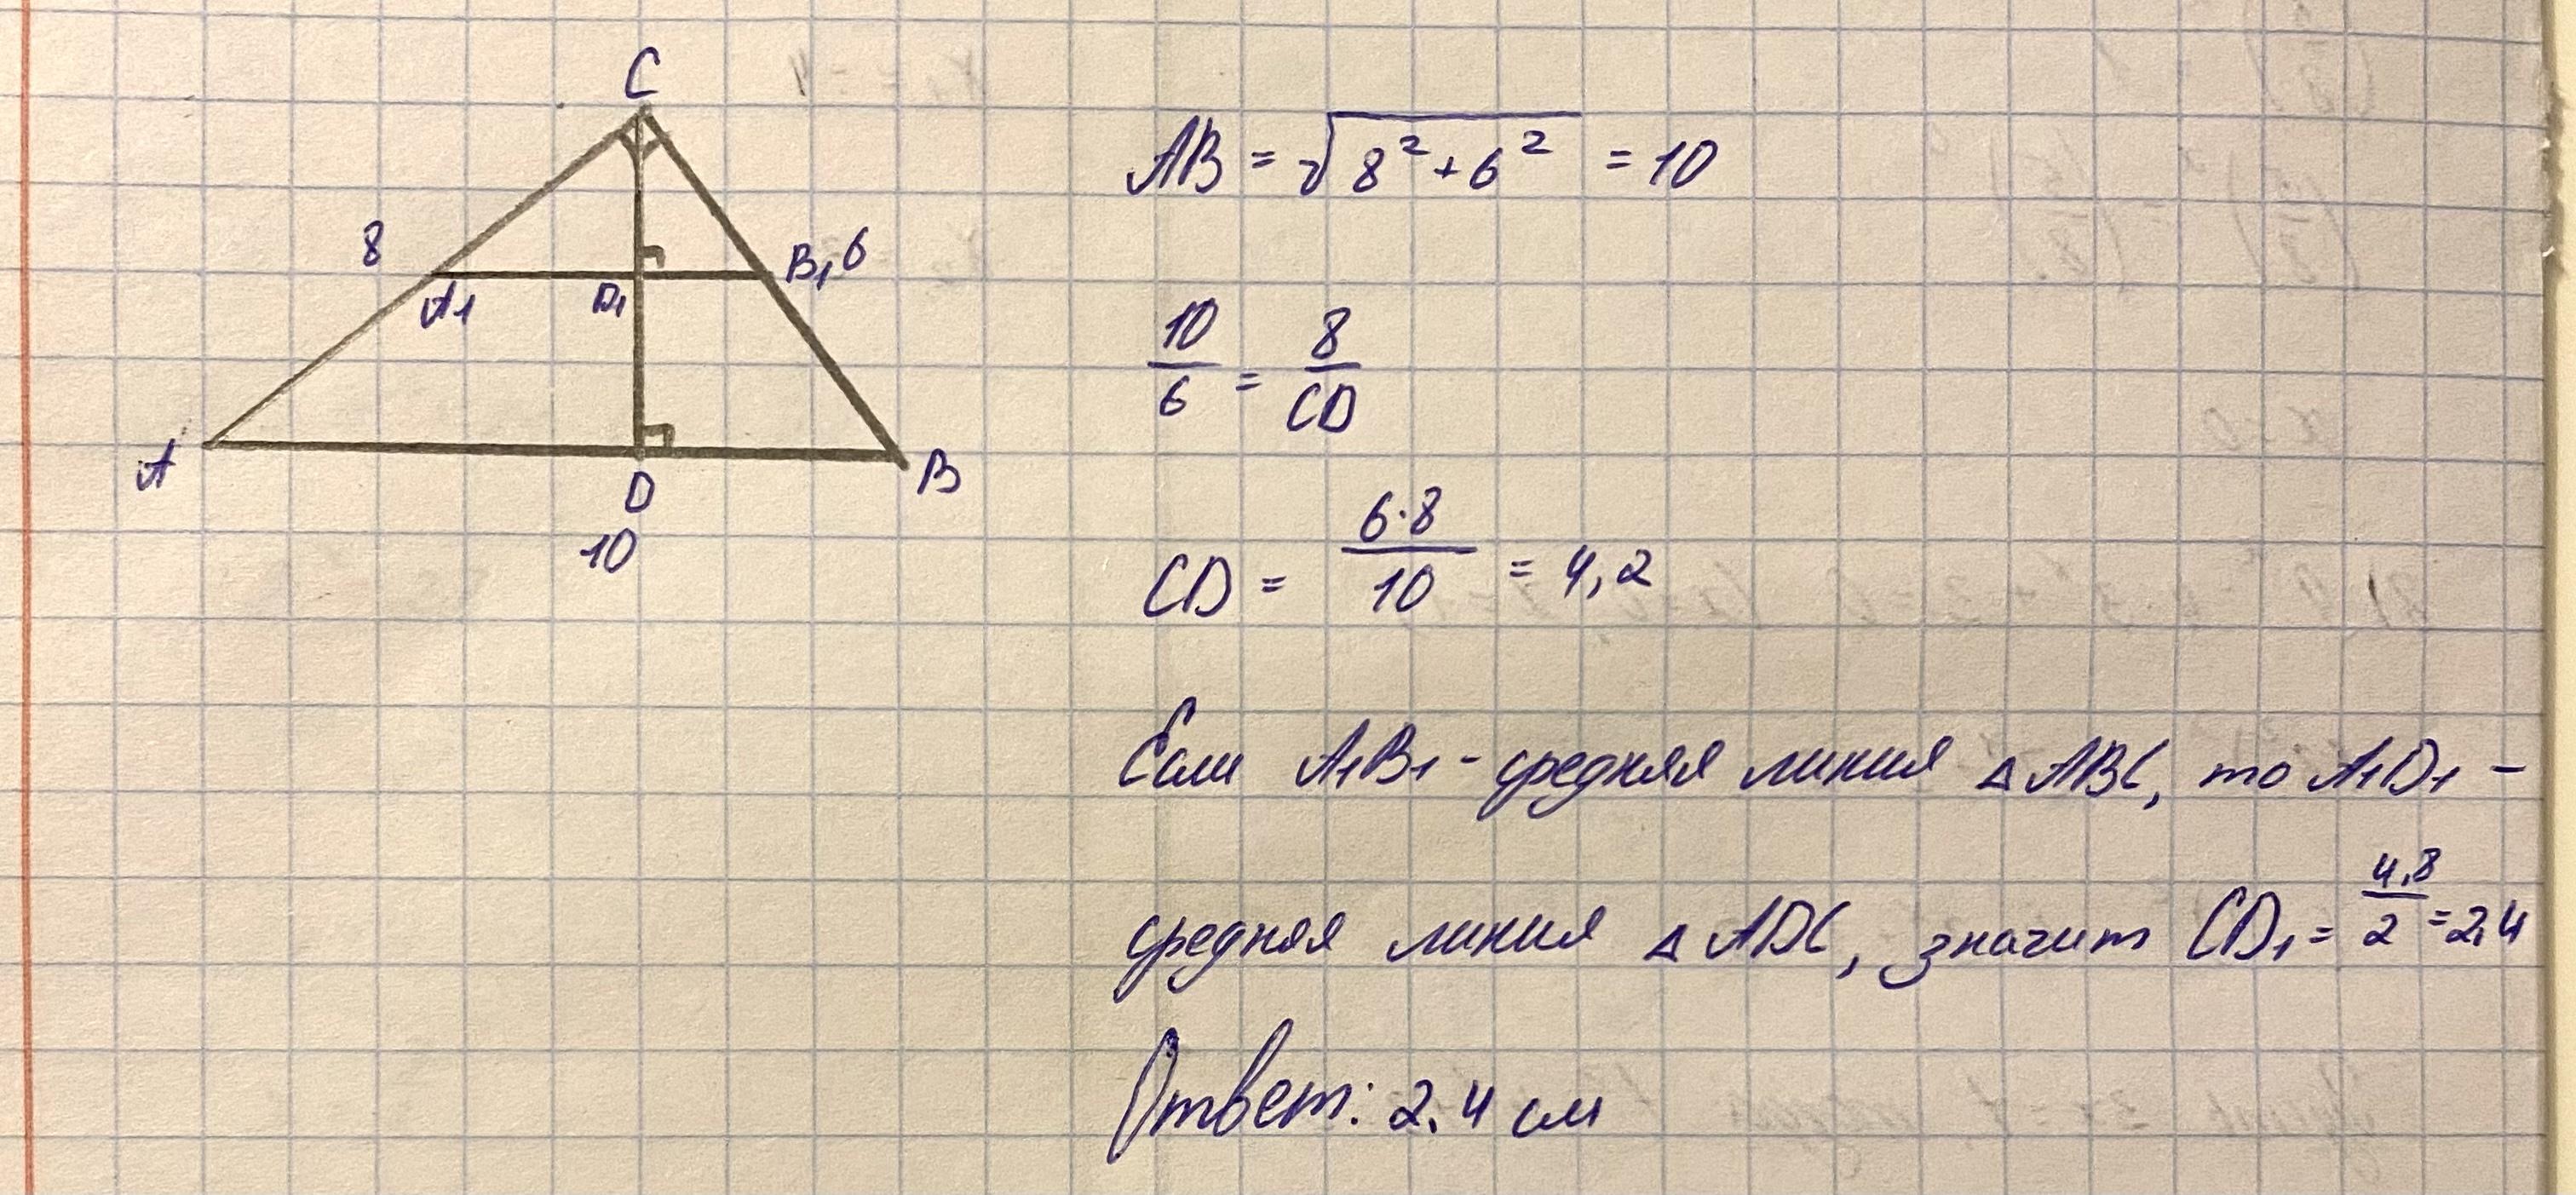 C
8
B₁ 6
A₁
D₁
A
D
B
10
AB = √8² + 6² = 10
10/6 = 8/CD
CD = 6·8/10 = 4,2
Если A₁B₁ - средняя линия △ABC, то A₁D₁ –
средняя линия △ADC, значит CD₁ = 4,8/2 = 2,4
Ответ: 2,4 см